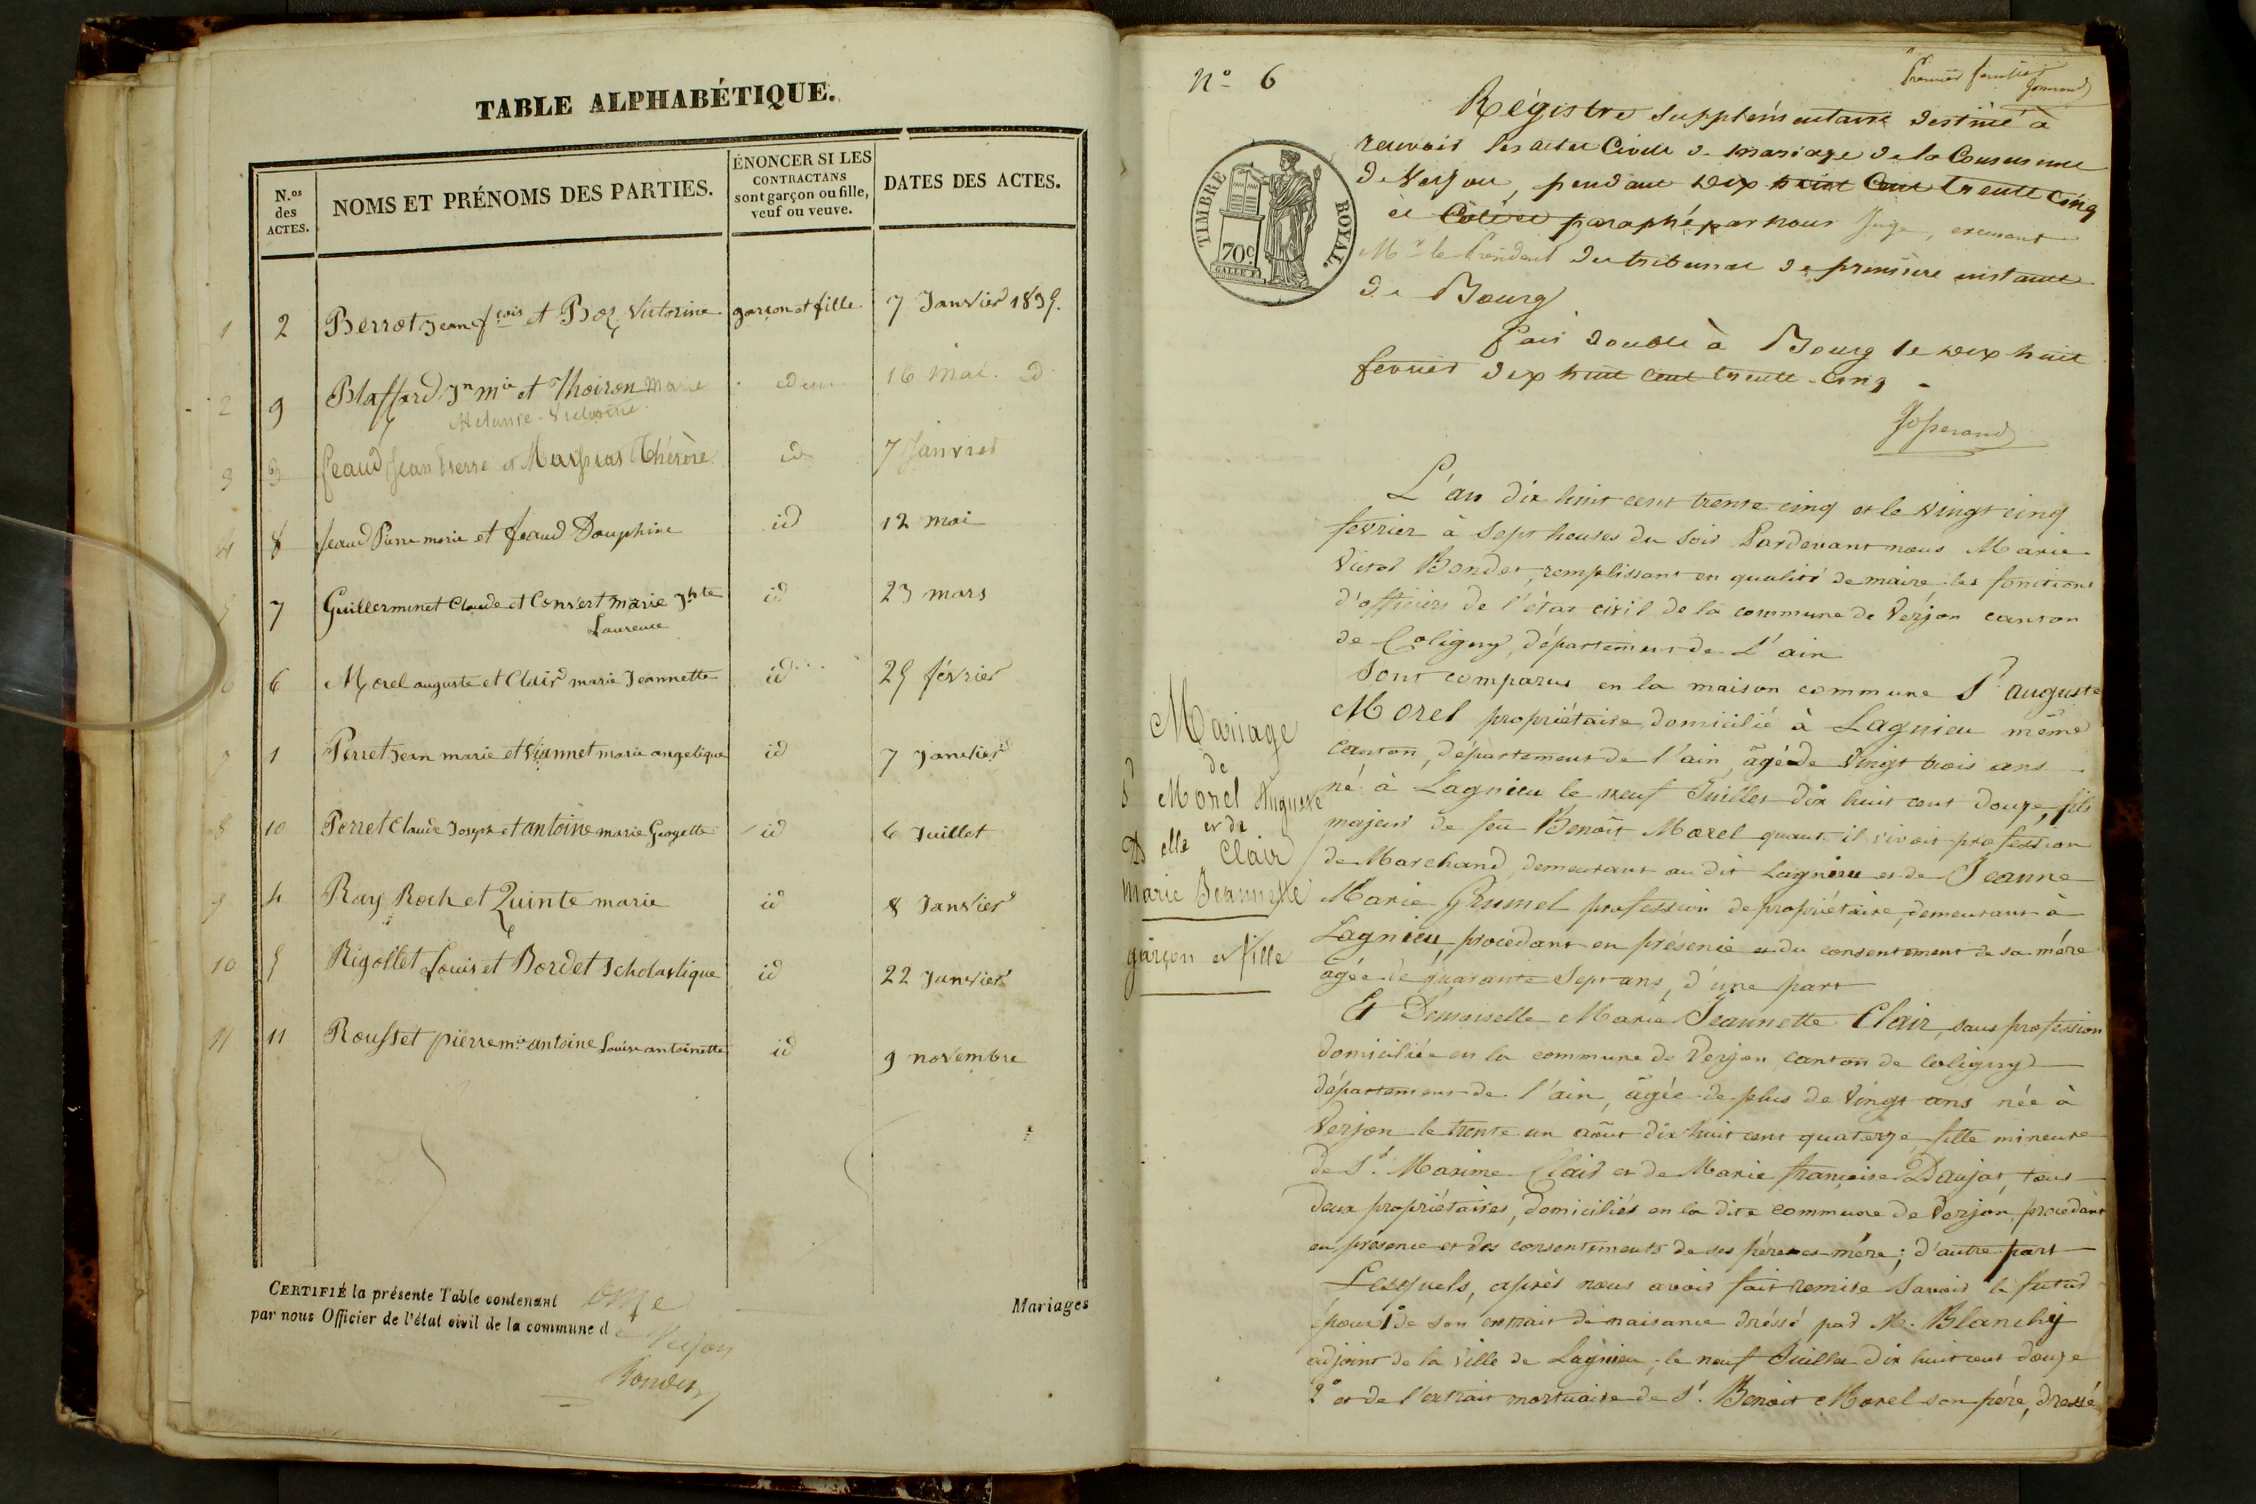 TABLE ALPHABÉTIQUE.
N.os des ACTES.
NOMS ET PRÉNOMS DES PARTIES.
ÉNONCER SI LES CONTRACTANS sont garçon ou fille, veuf ou veuve.
DATES DES ACTES.
1 2 Perrot Jean fçois et Boz Victorine garçon et fille 7 Janvier 1835.
2 9 Blaffard Jn mie et Thoiron Marie idem 16 mai id
Victorine
3 3 feaud Jean Pierre et Thérèse id 7 Janvier
4 8 feaud Pierre marie et feaud Dauphine id 12 mai
5 7 Guillerminet Claude et Convert marie Jhte id 23 mars
Laurence
6 6 Morel auguste et Clair marie Jeannette id 25 février
7 1 Perret Jean marie et Viannet marie angelique id 7 Janvier
8 10 Perret Claude Joseph et antoine marie Georgette id 6 Juillet
9 4 Ray Roch et Quinte marie id 8 Janvier
10 5 Rigollet Louis et Bordet Scholastique id 22 Janvier
11 11 Rousset pierre mie antoine Louise antoinette id 9 novembre
CERTIFIÉ la présente Table contenant onze Mariages
par nous Officier de l'état civil de la commune d e Verjon
Bondet
No 6
Premier feuillet
Josserand
Régistre supplémentaire destiné à
recevoir les actes Civils de mariage de la Commune
de Verjon, pendant dix huit Cent trente cinq
et Coté et paraphé par nous Juge, exerçant
Mr le Président du tribunal de première instance
de Bourg
fait double à Bourg le dix huit
fevrier dix huit cent trente-cinq -
Josserand
TIMBRE ROYAL.
70c
L'an dix huit cent trente cinq et le vingt cinq
fevrier à sept heures du soir Pardevant nous Marie
Victor Bondet, remplissant en qualité de maire les fonctions
d'officiers de l'état civil de la commune de Verjon canton
de Coligny, département de L'ain
Sont comparus en la maison commune Sr auguste
Morel propriétaire domicilié à Lagnieu même
canton, département de l'ain, âgé de vingt trois ans
né à Lagnieu le neuf Juillet dix huit cent douze, fils
majeur de feu Benoit Morel quant il vivoit profession
de Marchand, demeurant au dit Lagnieu et de Jeanne
Marie Grumel profession de propriétaire, demeurant à
Lagnieu procédant en présence et du consentement de sa mére
âgée de quarante sept ans, d'une part
Mariage
de
Sr Morel Auguste
et de
Delle Clair
Marie Jeannette
garçon et fille
Et Démoiselle Marie Jeannette Clair, sans profession
domiciliée en la commune de Verjon canton de coligny
département de l'ain, âgée de plus de vingt ans née à
Verjon le trente un août dix huit cent quatorze, fille mineure
de Sr. Maxime Clair et de Marie françoise Daujat, tous
deux propriétaires, domiciliés en la dite commune de Verjon, procédant
en présence et des consentements de ses pére et mére; d'autre part
Lesquels, après nous avoir fait remise savoir le futur
époux 1o de son extrait de naisance dréssé par M. Blanchy
adjoint de la ville de Lagnieu, le neuf Juillet dix huit cent douze
2o et de l'extrait mortuaire de Sr. Benoit Morel son pére, dressé